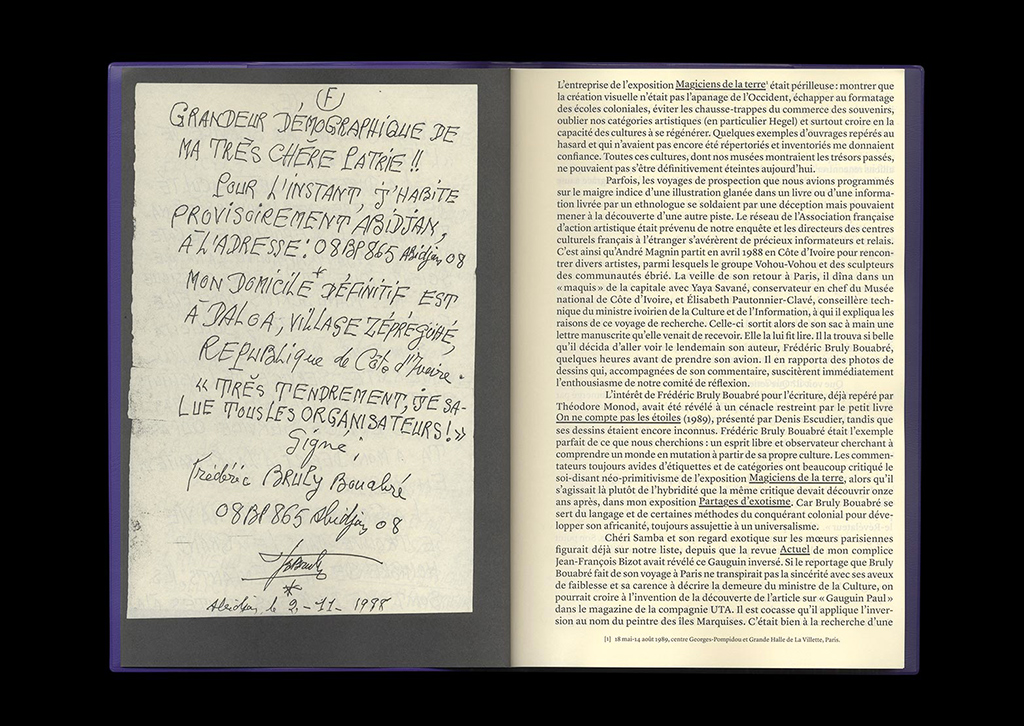 F
GRANDEUR DÉMOGRAPHIQUE DE
MA TRÈS CHÈRE PATRIE !!
POUR L'INSTANT, J'HABITE
PROVISOIREMENT, ABIDJAN,
À L'ADRESSE : 08 BP 865 Abidjan 08
MON DOMICILE * DÉFINITIF EST
À DALOA, VILLAGE ZÉPRÉGÜHÉ,
REPUBLIQUE de Côte d'Ivoire.
« TRÈS TENDREMENT, JE SA-
LUE TOUS LES ORGANISATEURS ! »
Signé ;
Frédéric BRULY Bouabré
08 BP 865 Abidjan 08
*
Abidjan le 2-11-
L'entreprise de l'exposition Magiciens de la terre¹ était périlleuse : montrer que
la création visuelle n'était pas l'apanage de l'Occident, échapper au formatage
des écoles coloniales, éviter les chausse-trappes du commerce des souvenirs,
oublier nos catégories artistiques (en particulier Hegel) et surtout croire en la
capacité des cultures à se régénérer. Quelques exemples d'ouvrages repérés au
hasard et qui n'avaient pas encore été répertoriés et inventoriés me donnaient
confiance. Toutes ces cultures, dont nos musées montraient les trésors passés,
ne pouvaient pas s'être définitivement éteintes aujourd'hui.
Parfois, les voyages de prospection que nous avions programmés
sur le maigre indice d'une illustration glanée dans un livre ou d'une informa-
tion livrée par un ethnologue se soldaient par une déception mais pouvaient
mener à la découverte d'une autre piste. Le réseau de l'Association française
d'action artistique était prévenu de notre enquête et les directeurs des centres
culturels français à l'étranger s'avérèrent de précieux informateurs et relais.
C'est ainsi qu'André Magnin partit en avril 1988 en Côte d'Ivoire pour rencon-
trer divers artistes, parmi lesquels le groupe Vohou-Vohou et des sculpteurs
des communautés ébrié. La veille de son retour à Paris, il dîna dans un
« maquis » de la capitale avec Yaya Savané, conservateur en chef du Musée
national de Côte d'Ivoire, et Élisabeth Pautonnier-Clavé, conseillère tech-
nique du ministre ivoirien de la Culture et de l'Information, à qui il expliqua les
raisons de ce voyage de recherche. Celle-ci sortit alors de son sac à main une
lettre manuscrite qu'elle venait de recevoir. Elle la lui fit lire. Il la trouva si belle
qu'il décida d'aller voir le lendemain son auteur, Frédéric Bruly Bouabré,
quelques heures avant de prendre son avion. Il en rapporta des photos de
dessins qui, accompagnées de son commentaire, suscitèrent immédiatement
l'enthousiasme de notre comité de réflexion.
L'intérêt de Frédéric Bruly Bouabré pour l'écriture, déjà repéré par
Théodore Monod, avait été révélé à un cénacle restreint par le petit livre
On ne compte pas les étoiles (1989), présenté par Denis Escudier, tandis que
ses dessins étaient encore inconnus. Frédéric Bruly Bouabré était l'exemple
parfait de ce que nous cherchions : un esprit libre et observateur cherchant à
comprendre un monde en mutation à partir de sa propre culture. Les commen-
tateurs toujours avides d'étiquettes et de catégories ont beaucoup critiqué le
soi-disant néo-primitivisme de l'exposition Magiciens de la terre, alors qu'il
s'agissait là plutôt de l'hybridité que la même critique devait découvrir onze
ans après, dans mon exposition Partages d'exotisme. Car Bruly Bouabré se
sert du langage et de certaines méthodes du conquérant colonial pour déve-
lopper son africanité, toujours assujettie à un universalisme.
Chéri Samba et son regard exotique sur les mœurs parisiennes
figurait déjà sur notre liste, depuis que la revue Actuel de mon complice
Jean-François Bizot avait révélé ce Gauguin inversé. Si le reportage que Bruly
Bouabré fait de son voyage à Paris ne transpirait pas la sincérité avec ses aveux
de faiblesse et sa carence à décrire la demeure du ministre de la Culture, on
pourrait croire à l'invention de la découverte de l'article sur « Gauguin Paul »
dans le magazine de la compagnie UTA. Il est cocasse qu'il applique l'inver-
sion au nom du peintre des îles Marquises. C'était bien à la recherche d'une
[1] 18 mai-14 août 1989, centre Georges-Pompidou et Grande Halle de La Villette, Paris.